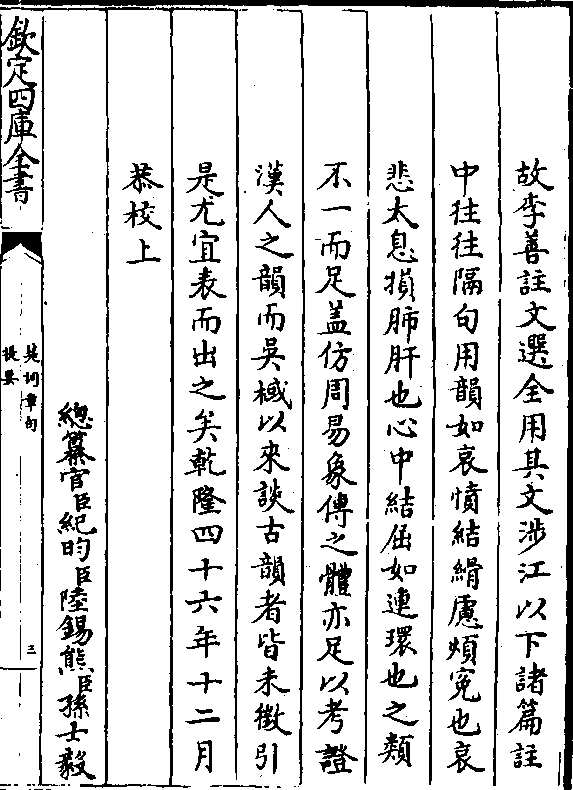 故李善註文選全用其文涉江以下諸篇註
中往往隔句用韻如哀憤結縎慮煩寃也哀
悲太息損肺肝也心中結屈如連環也之類
不一而足盖仿周易象傳之體亦足以考證
漢人之韻而吳棫以來談古韻者皆未徵引
是尤宜表而出之矣乾隆四十六年十二月
恭校上
總纂官臣紀昀臣陸錫熊臣孫士毅
欽定四庫全書
楚詞章句
提要
三